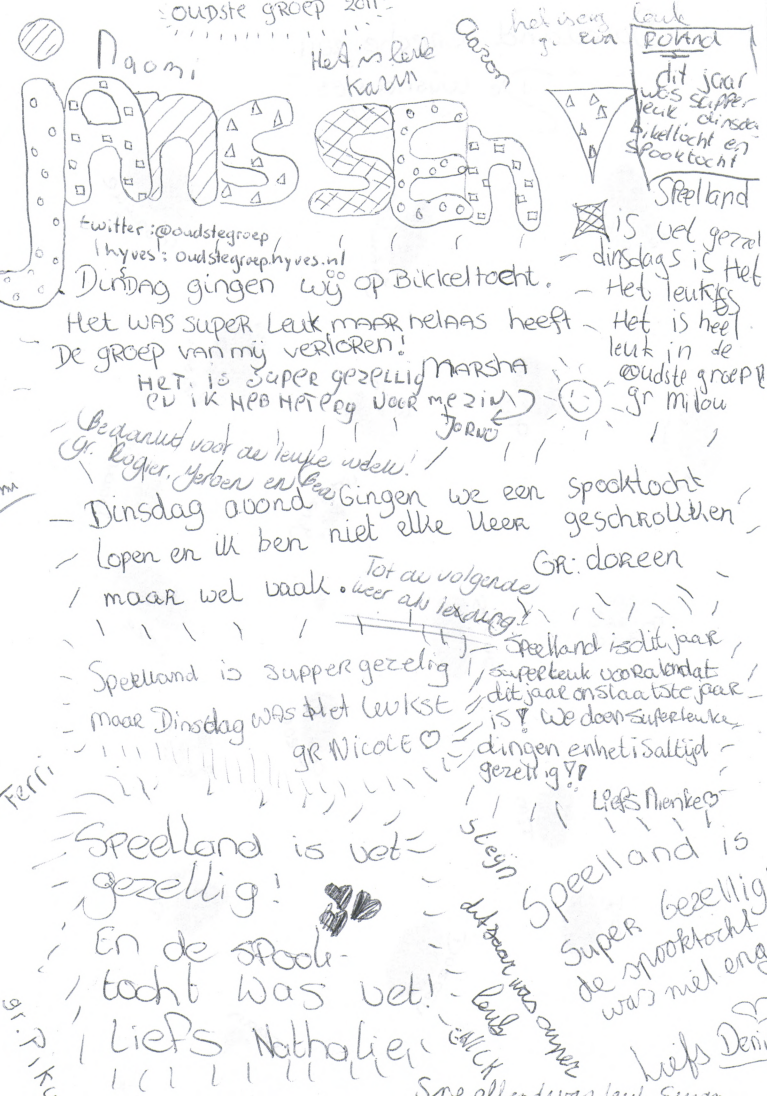 OUDSTE GROEP 2011
Naomi
Het is leuk
Karin
Aaron
het is erg leuk
JANSSEN V
Roland
dit jaar
was supper
leuk, dinsda
bikeltocht en
spooktocht
twitter: @oudstegroep
hyves: oudstegroep.hyves.nl
Dinsdag gingen wij op Bikkeltocht.
Het WAS SUPER LEUK MAAR HELAAS heeft
De GROEP VAN Mij VERLOREN!
MARSHA
Speelland
is vet gezel
dinsdags is Het
Het leukst
Het is heel
leuk in de
oudste groep!
gr milou
HET is super gezellig
en ik HEB HET erg naar me zin
JORNO
Bedankt voor de leuke week!
gr. Rogier, Jerben en Bea
Dinsdag avond Gingen we een spooktocht
lopen en ik ben niet elke keer geschrokken
maar wel vaak.
GR: doreen
Tot de volgende
keer als leiding!
Speelland is supper gezelig
maar Dinsdag WAS Het leukst
GR Nicole ♡
Speelland is dit jaar
superleuk vooral omdat
dit jaar ons laatste jaar
is! We doen superleuke
dingen en het is altijd
gezellig!!
Liefs Nienke ♡
Ferri
Speelland is vet
gezellig!
En de spook-
tocht was vet!
Liefs Nathalie,
Stejn
dit jaar was super
leuk
NICK
Speelland is
super Gezellig
de spooktocht
was niet eng
Liefs Deni
gr. Pik